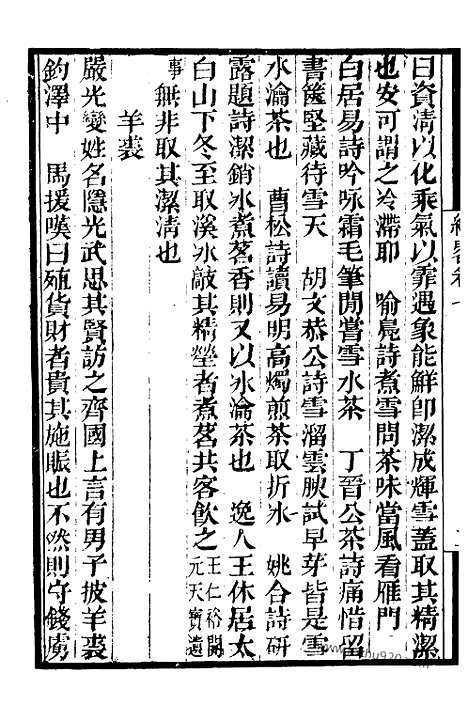 曰資清以化乘氣以霏遇象能鮮卽潔成輝雪蓋取其精潔
也安可謂之冷滯耶　喻鳧詩煮雪問茶味當風看雁門
白居易詩吟咏霜毛筆閒嘗雪水茶　丁晉公茶詩痛惜留
書篋堅藏待雪天　胡文恭公詩雪溜雲腴試早芽皆是雪
水瀹茶也　曹松詩讀易明高燭煎茶取折冰　姚合詩研
露題詩潔銷冰煮茗香則又以冰瀹茶也　逸人王休居太
白山下冬至取溪冰敲其精瑩者煮茗共客飲之王仁裕開
元天寶遺
事無非取其潔清也
羊裘
嚴光變姓名隱光武思其賢訪之齊國上言有男子披羊裘
釣澤中　馬援嘆曰殖貨財者貴其施賑也不然則守錢虜